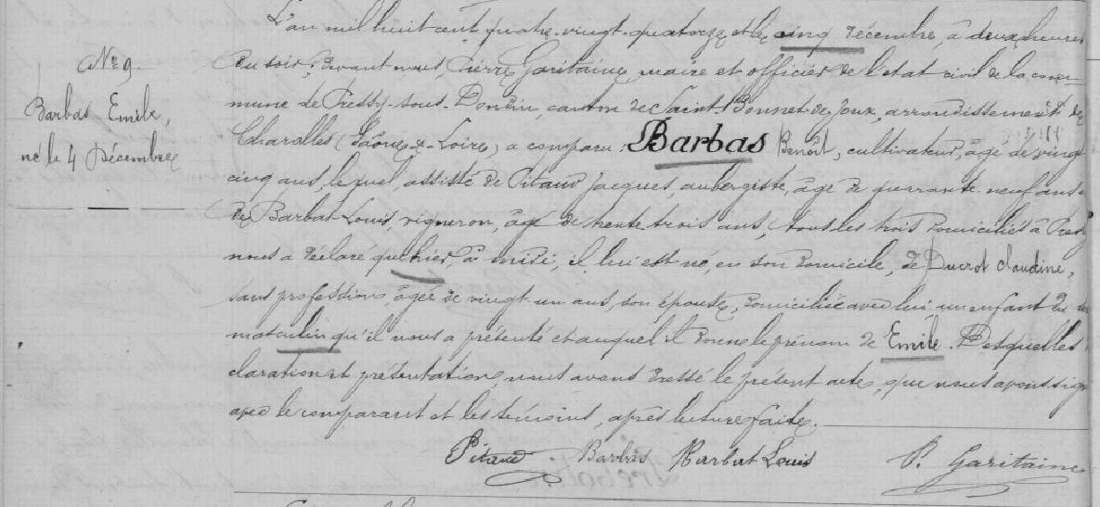 L'an mil huit cent quatre-vingt-quatorze et le cinq décembre, à deux heures
du soir, devant nous, Pierre Garitaine, maire et officier de l'état civil de la com-
mune de Pressy-sous-Dondin, canton de Saint-Bonnet-de-Joux, arrondissement de
Charolles (Saône-&-Loire), a comparu : Barbas Benoît, cultivateur, âgé de vingt
cinq ans, lequel, assisté de Pitaud Jacques, aubergiste, âgé de quarante neuf ans
de Barbat Louis, vigneron, âgé de trente trois ans, tous les trois domiciliés à Pressy
nous a déclaré qu'hier, à midi, il lui est né, en son domicile, de Ducrot Claudine,
sans profession, âgée de vingt un ans, son épouse, domiciliée avec lui un enfant du
masculin qu'il nous a présenté et auquel il donne le prénom de Emile. Desquelles
claration et présentation, nous avons dressé le présent acte, que nous avons sig
avec le comparant et les témoins, après lecture faite.
Pitaud Barbas Barbat Louis P. Garitaine
No 9
Barbas Emile,
né le 4 Décembre